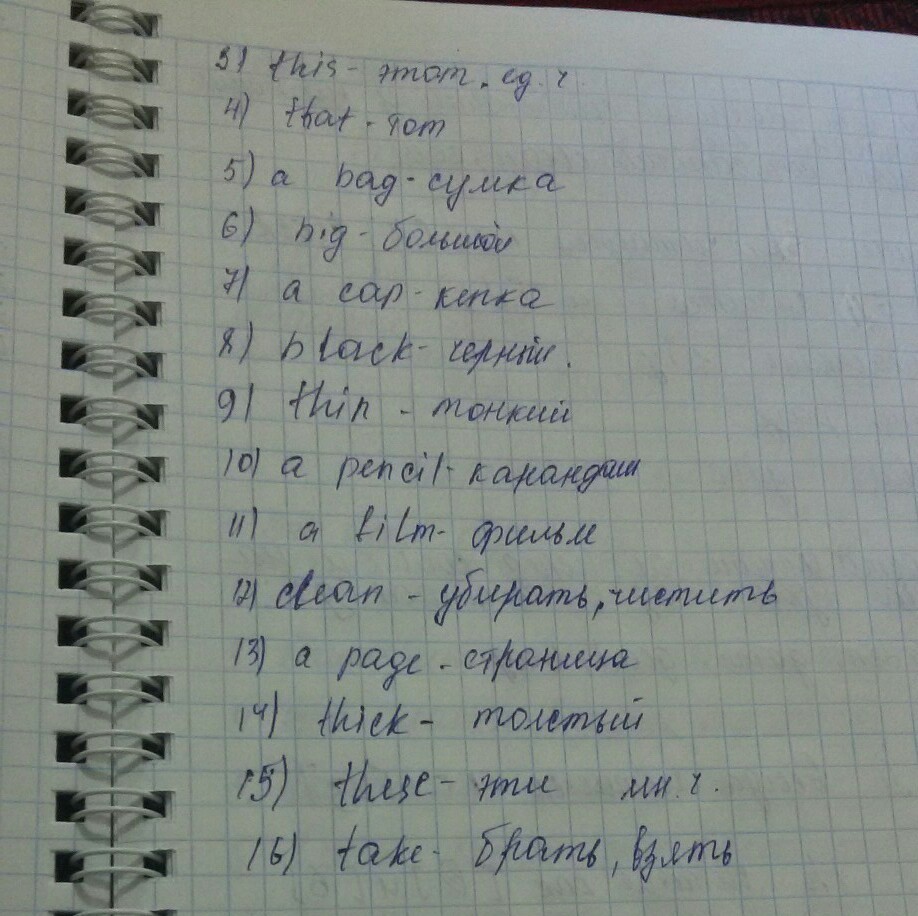 3) this - этот, ед. ч.
4) that - тот
5) a bag - сумка
6) big - большой
7) a cap - кепка
8) black - черный.
9) thin - тонкий
10) a pencil - карандаш
11) a film - фильм
12) clean - убирать, чистить
13) a page - страница
14) thick - толстый
15) these - эти мн. ч.
16) take - брать, взять